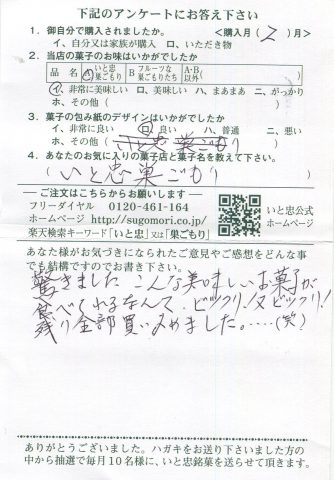 下記のアンケートにお答え下さい
1. 御自分で購入されましたか。 <購入月( 2 )月>
イ、自分又は家族が購入 ロ、いただき物
2. 当店の菓子のお味はいかがでしたか
品名 Ⓐいと忠巣ごもり Bフルーツな巣ごもりたち A・B以外( )
イ、非常に美味しい ロ、美味しい ハ、まあまあ ニ、がっかり
ホ、その他( )
3. 菓子の包み紙のデザインはいかがでしたか
イ、非常に良い ロ、良い ハ、普通 ニ、悪い
ホ、その他(いと忠 巣ごもり)
4. あなたのお気に入りの菓子店と菓子名を教えて下さい。
(いと忠 巣ごもり)
―ご注文はこちらからお願いします―
フリーダイヤル 0120-461-164
ホームページ http://sugomori.co.jp/
楽天検索キーワード「いと忠」又は「巣ごもり」
いと忠公式
ホームページ
あなた様がお気づきになられたご意見やご感想をどんな事
でも結構ですのでお書き下さい。
驚きました こんな美味しいお菓子が
食べてくれるなんて、ビックリ!又ビックリ!
残り全部買いしめました。‥‥(笑)
ありがとうございました。ハガキをお送り下さいました方の
中から抽選で毎月10名様に、いと忠銘菓を送らせて頂きます。